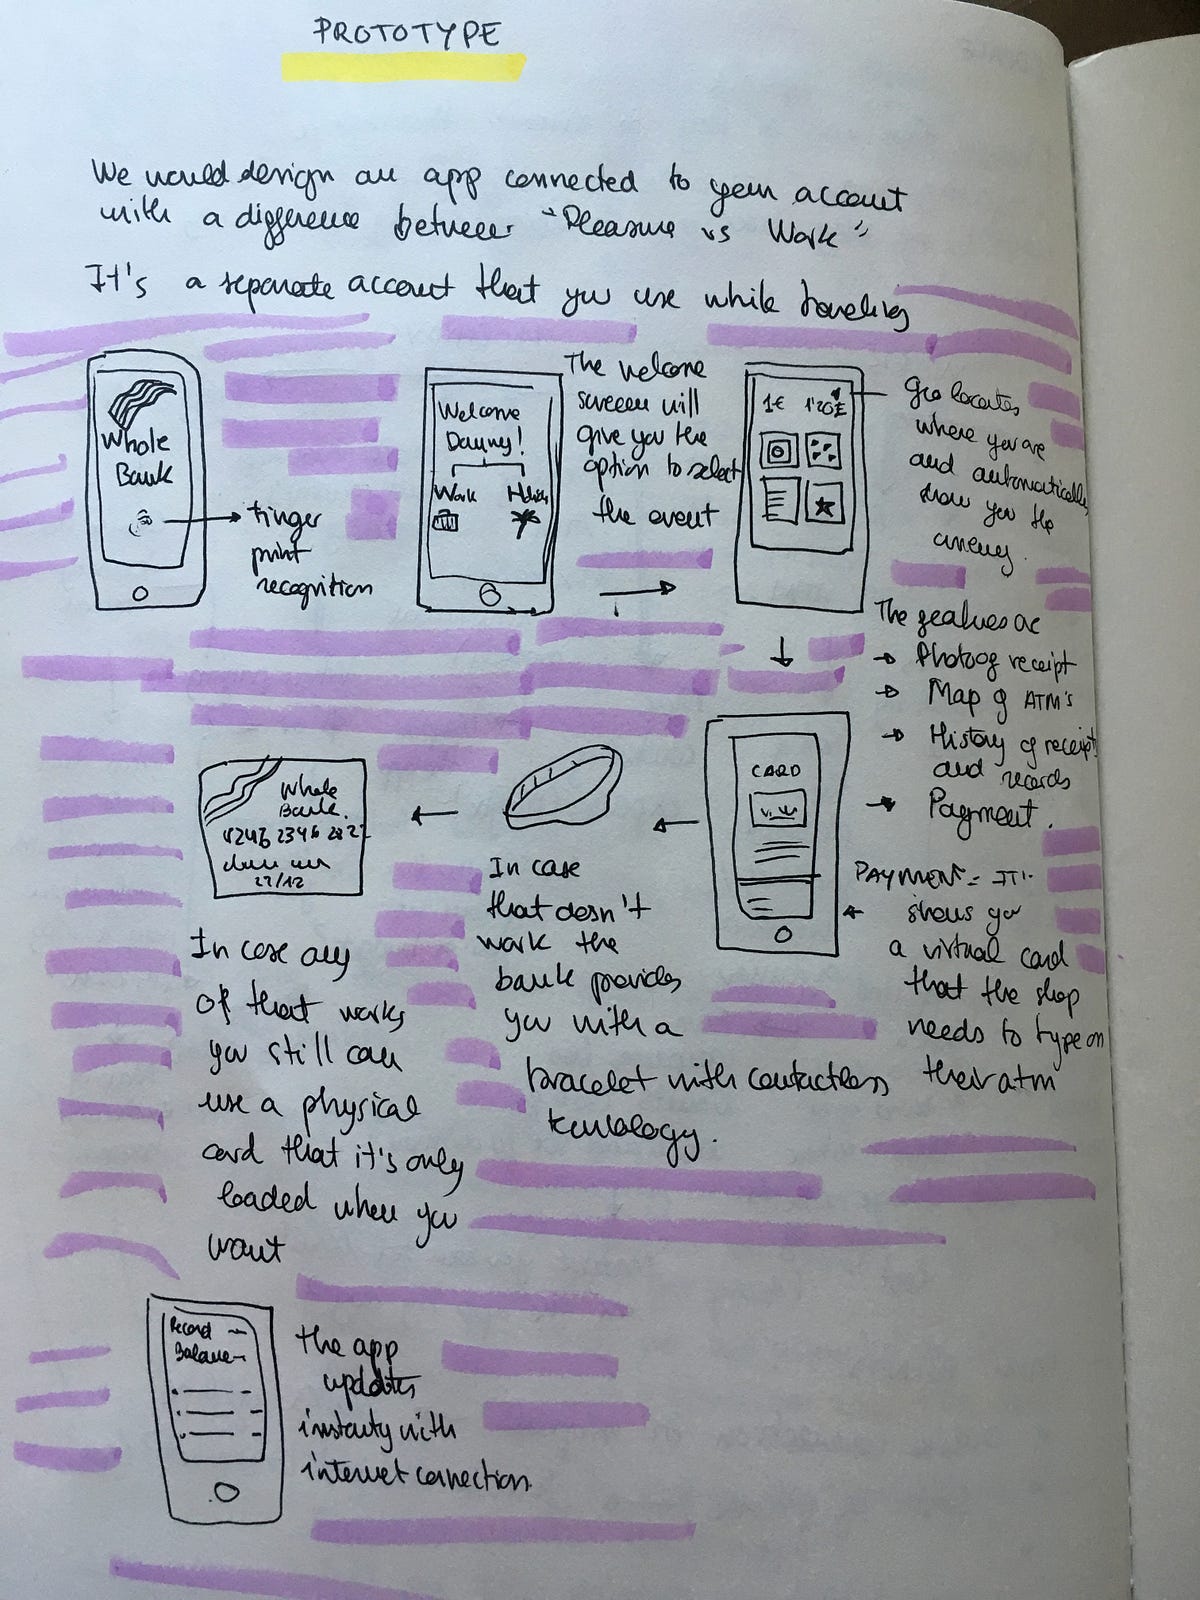 PROTOTYPE
We would design an app connected to your account
with a difference between "Pleasure vs Work"
It's a separate account that you use while traveling
Whole
Bank
finger
print
recognition
Welcome
Danny!
Work
The welcome
screen will
give you the
option to select
the event
1€
Geo locates
where you are
and automatically
show you the
The features are
→ Photo of receipt
→ Map of ATM's
→ History of receipts
and records
→ Payment.
CARD
PAYMENT =
shows you
a virtual card
that the shop
needs to type on
their atm
In case
that doesn't
work the
bank provides
you with a
bracelet with contactless
Whole
Bank.
2346
27/12
In case any
of that works
you still can
use a physical
card that it's only
loaded when you
want
Record
Balance
the app
updates
instanty with
internet connection.